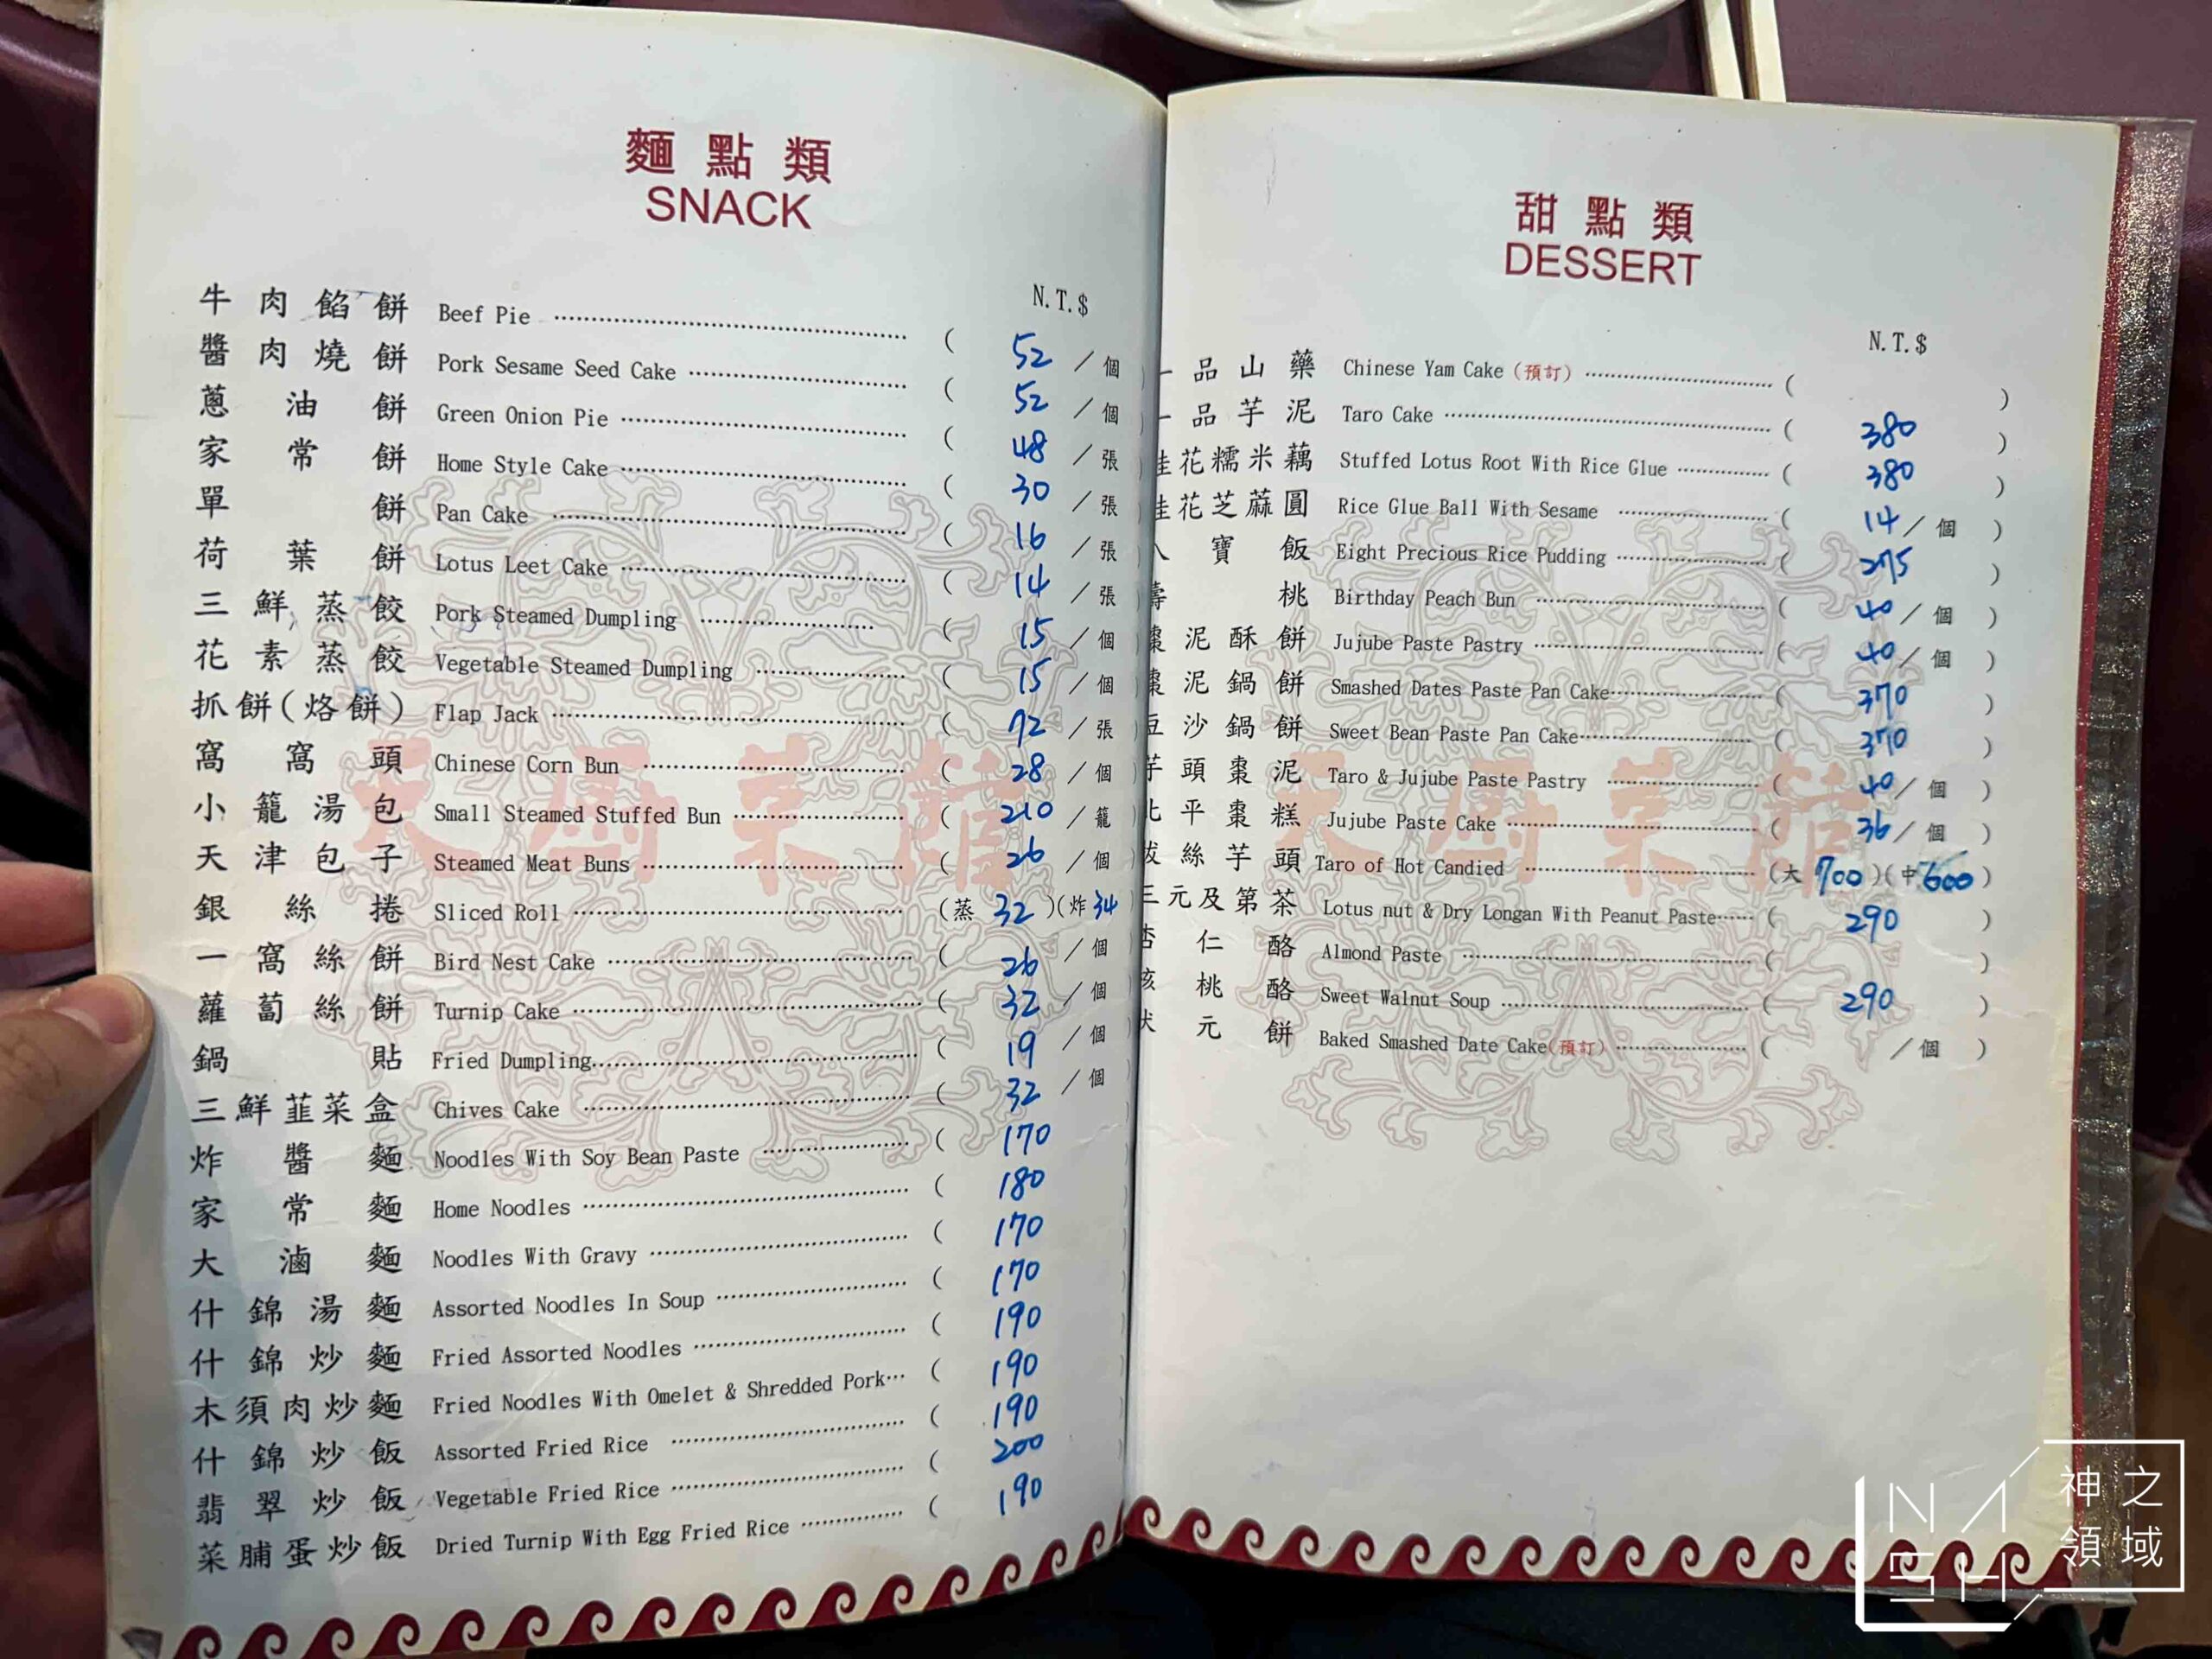 麵點類
SNACK
N.T.$
牛肉餡餅 Beef Pie ( 52 / 個
醬肉燒餅 Pork Sesame Seed Cake ( 52 / 個
蔥油餅 Green Onion Pie ( 48 / 張
家常餅 Home Style Cake ( 30 / 張
單餅 Pan Cake ( 16 / 張
荷葉餅 Lotus Leet Cake ( 14 / 張
三鮮蒸餃 Pork Steamed Dumpling ( 15 / 個
花素蒸餃 Vegetable Steamed Dumpling ( 15 / 個
抓餅(烙餅) Flap Jack ( 72 / 張
窩窩頭 Chinese Corn Bun ( 28 / 個
小籠湯包 Small Steamed Stuffed Bun ( 210 / 籠
天津包子 Steamed Meat Buns ( 26 / 個
銀絲捲 Sliced Roll (蒸 32 )(炸 34
一窩絲餅 Bird Nest Cake ( 26 / 個
蘿蔔絲餅 Turnip Cake ( 32 / 個
鍋貼 Fried Dumpling ( 19 / 個
三鮮韮菜盒 Chives Cake ( 32 / 個
炸醬麵 Noodles With Soy Bean Paste ( 170
家常麵 Home Noodles ( 180
大滷麵 Noodles With Gravy ( 170
什錦湯麵 Assorted Noodles In Soup ( 170
什錦炒麵 Fried Assorted Noodles ( 190
木須肉炒麵 Fried Noodles With Omelet & Shredded Pork ( 190
什錦炒飯 Assorted Fried Rice ( 190
翡翠炒飯 Vegetable Fried Rice ( 200
菜脯蛋炒飯 Dried Turnip With Egg Fried Rice ( 190
天廚菜館
甜點類
DESSERT
N.T.$
一品山藥 Chinese Yam Cake (預訂) ( )
一品芋泥 Taro Cake ( 380 )
桂花糯米藕 Stuffed Lotus Root With Rice Glue ( 380 )
桂花芝蔴圓 Rice Glue Ball With Sesame ( 14 / 個 )
八寶飯 Eight Precious Rice Pudding ( 275 )
壽桃 Birthday Peach Bun ( 40 / 個 )
棗泥酥餅 Jujube Paste Pastry ( 40 / 個 )
棗泥鍋餅 Smashed Dates Paste Pan Cake ( 370 )
豆沙鍋餅 Sweet Bean Paste Pan Cake ( 370 )
芋頭棗泥 Taro & Jujube Paste Pastry ( 40 / 個 )
北平棗糕 Jujube Paste Cake ( 36 / 個 )
拔絲芋頭 Taro of Hot Candied (大 700 )(中 600 )
三元及第茶 Lotus nut & Dry Longan With Peanut Paste ( 290 )
杏仁酪 Almond Paste ( )
核桃酪 Sweet Walnut Soup ( 290 )
狀元餅 Baked Smashed Date Cake(預訂) ( / 個 )
天廚菜館
NASH
神之領域